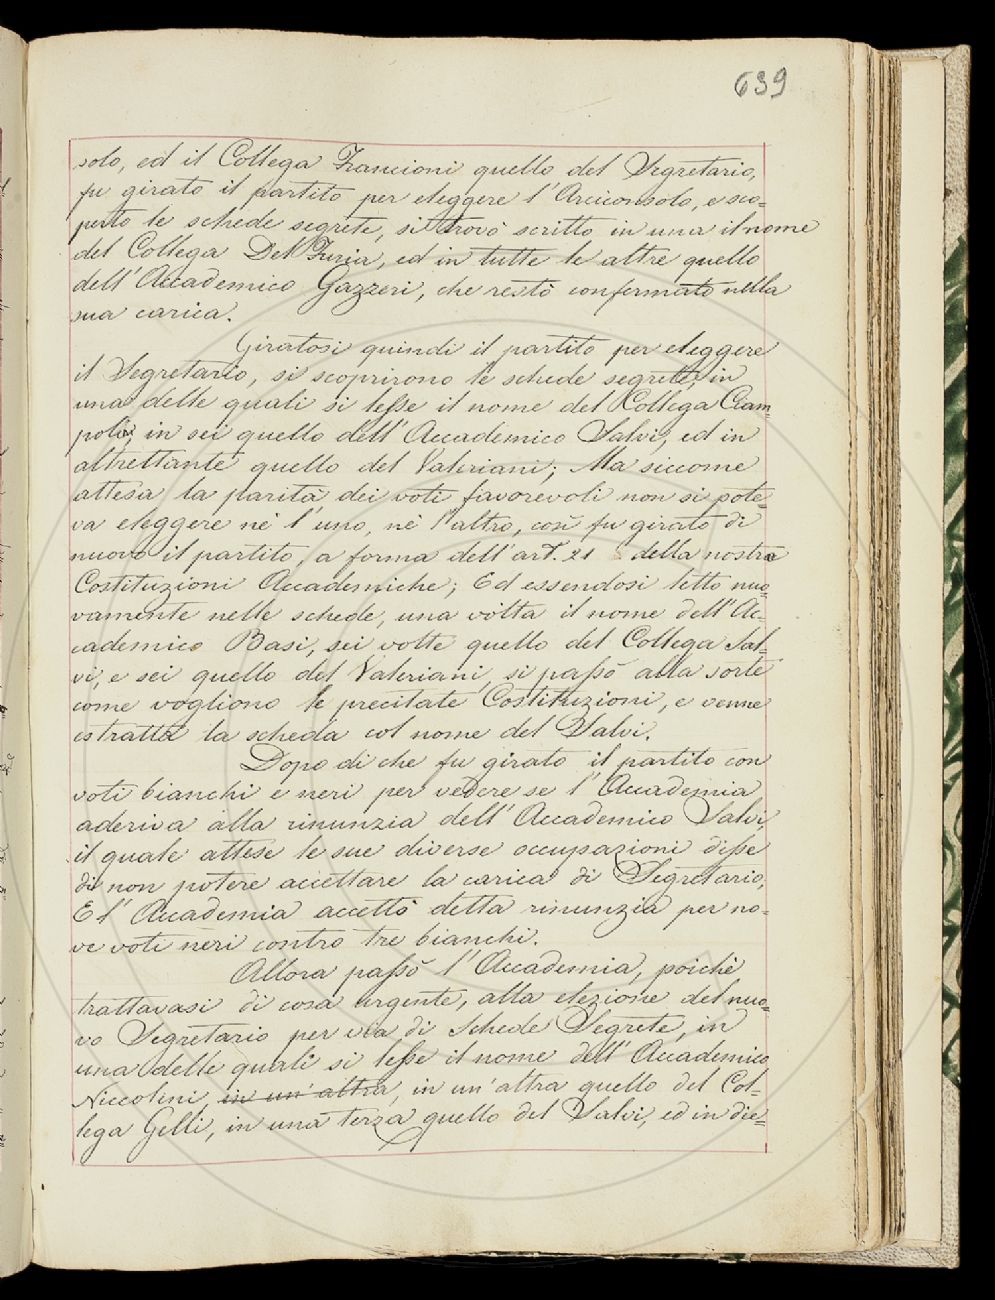 639
solo, ed il Collega Francioni quello del Segretario,
fu girato il partito per eleggere l'Arciconsolo, e sco=
perto le schede segrete, si trovò scritto in una il nome
del Collega Del Furia, ed in tutte le altre quello
dell'Accademico Gazzeri, che restò confermato nella
sua carica.
Giratosi quindi il partito per eleggere
il Segretario, si scoprirono le schede segrete, in
una delle quali si lesse il nome del Collega Ciam=
poli, in sei quello dell'Accademico Salvi, ed in
altrettante quello del Valeriani; Ma siccome
attesa la parità dei voti favorevoli non si pote=
va eleggere nè l'uno, nè l'altro, così fu girato di
nuovo il partito, a forma dell'art. 21 della nostra
Costituzioni Accademiche; Ed essendosi letto nuo=
vamente nelle schede, una volta il nome dell'Ac=
cademico Basi, sei volte quello del Collega Sal=
vi, e sei quello del Valeriani, si passò alla sorte
come vogliono le precitate Costituzioni, e venne
estratta la scheda col nome del Salvi.
Dopo di che fu girato il partito con
voti bianchi e neri per vedere se l'Accademia
aderiva alla rinunzia dell'Accademico Salvi,
il quale attese le sue diverse occupazioni disse
di non potere accettare la carica di Segretario,
E l'Accademia accettò detta rinunzia per no=
ve voti neri contro tre bianchi.
Allora passò l'Accademia, poichè
trattavasi di cosa urgente, alla elezione del nuo=
vo Segretario per via di Schede Segrete, in
una delle quali si lesse il nome dell'Accademico
Niccolini, in un'altra, in un'altra quello del Col=
lega Gelli, in una terza quello del Salvi, ed in die=